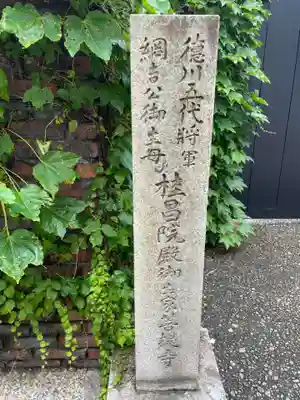 徳川五代将軍
綱吉公御生母
桂昌院殿御菩提寺